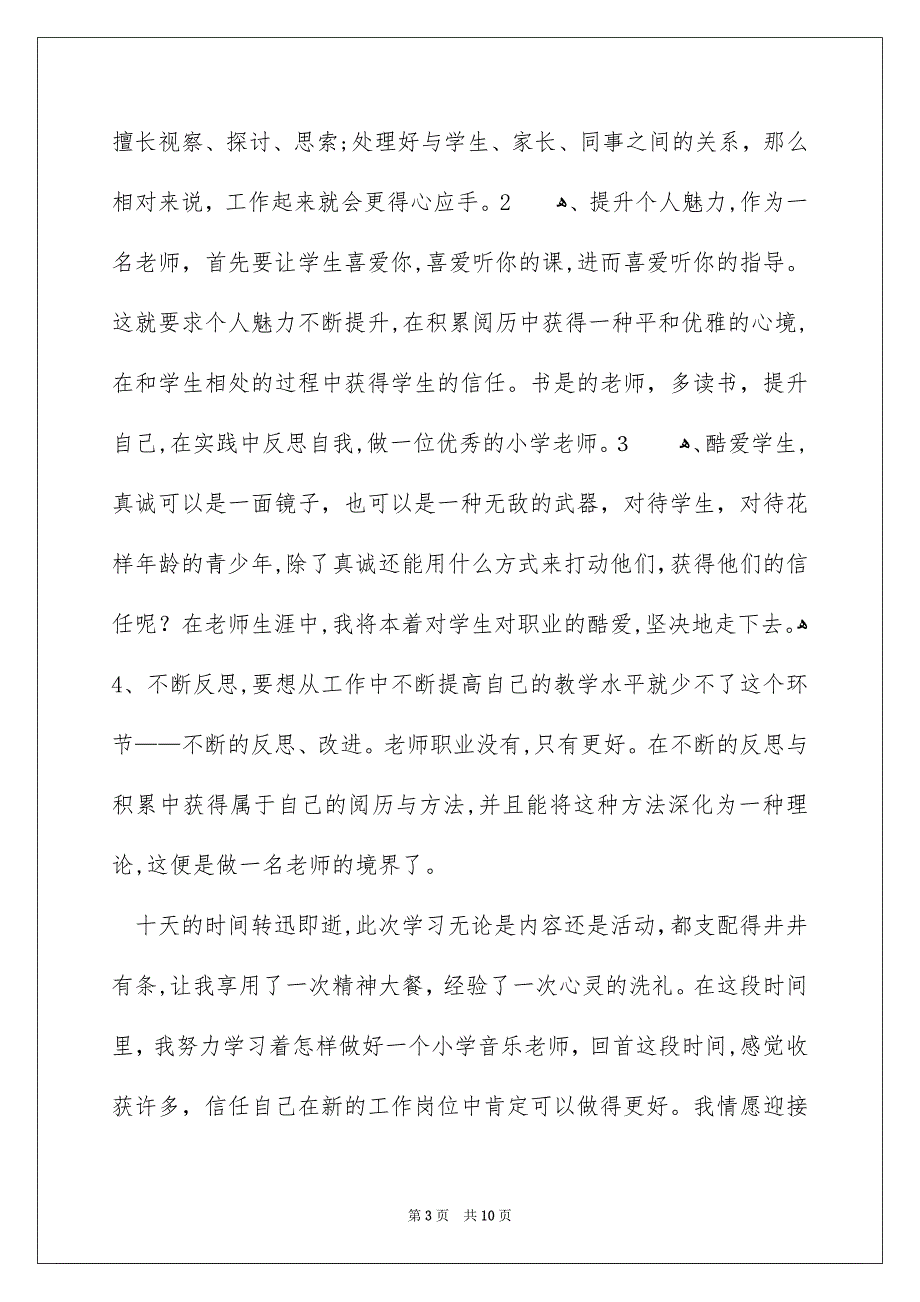 擅长视察、探讨、思索;处理好与学生、家长、同事之间的关系，那么
相对来说，工作起来就会更得心应手。2 ﻫ、提升个人魅力,作为一
名老师，首先要让学生喜爱你,喜爱听你的课,进而喜爱听你的指导。
这就要求个人魅力不断提升,在积累阅历中获得一种平和优雅的心境,
在和学生相处的过程中获得学生的信任。书是的老师，多读书，提升
自己,在实践中反思自我,做一位优秀的小学老师。3 ﻫ、酷爱学生,
真诚可以是一面镜子，也可以是一种无敌的武器，对待学生，对待花
样年龄的青少年,除了真诚还能用什么方式来打动他们，获得他们的信
任呢？在老师生涯中,我将本着对学生对职业的酷爱,坚决地走下去。ﻫ
4、不断反思,要想从工作中不断提高自己的教学水平就少不了这个环
节——不断的反思、改进。老师职业没有,只有更好。在不断的反思与
积累中获得属于自己的阅历与方法,并且能将这种方法深化为一种理
论,这便是做一名老师的境界了。
十天的时间转迅即逝,此次学习无论是内容还是活动，都支配得井井
有条,让我享用了一次精神大餐，经验了一次心灵的洗礼。在这段时间
里，我努力学习着怎样做好一个小学音乐老师，回首这段时间,感觉收
获许多，信任自己在新的工作岗位中肯定可以做得更好。我情愿迎接
第 3 页 共 10 页